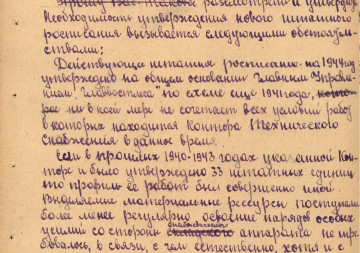 Прошу Вас также рассмотреть и утвердить
Необходимость утверждения нового штатного
росписания вызывается следующими обстоятель-
ствами:
Действующее штатное росписание на 1944 год
утверждено на общем основании Главным Управле-
нием "Главвостлес" по схеме еще 1941 года, кото-
рое ни в коей мере не сочетает всех условий работ
в которых находится Контора Технического
снабжения в данное время.
Если в прошлых 1940-1943 годах указанной Кон-
торе и было утверждено 33 штатных единиц,
то профиль ее работ был совершенно иной.
Выделяемые материальные ресурсы поступали
более менее регулярно освоение нарядов особых
усилий со стороны снабженческого аппарата не тре-
бовалось, в связи, с чем естественно, хотя и с